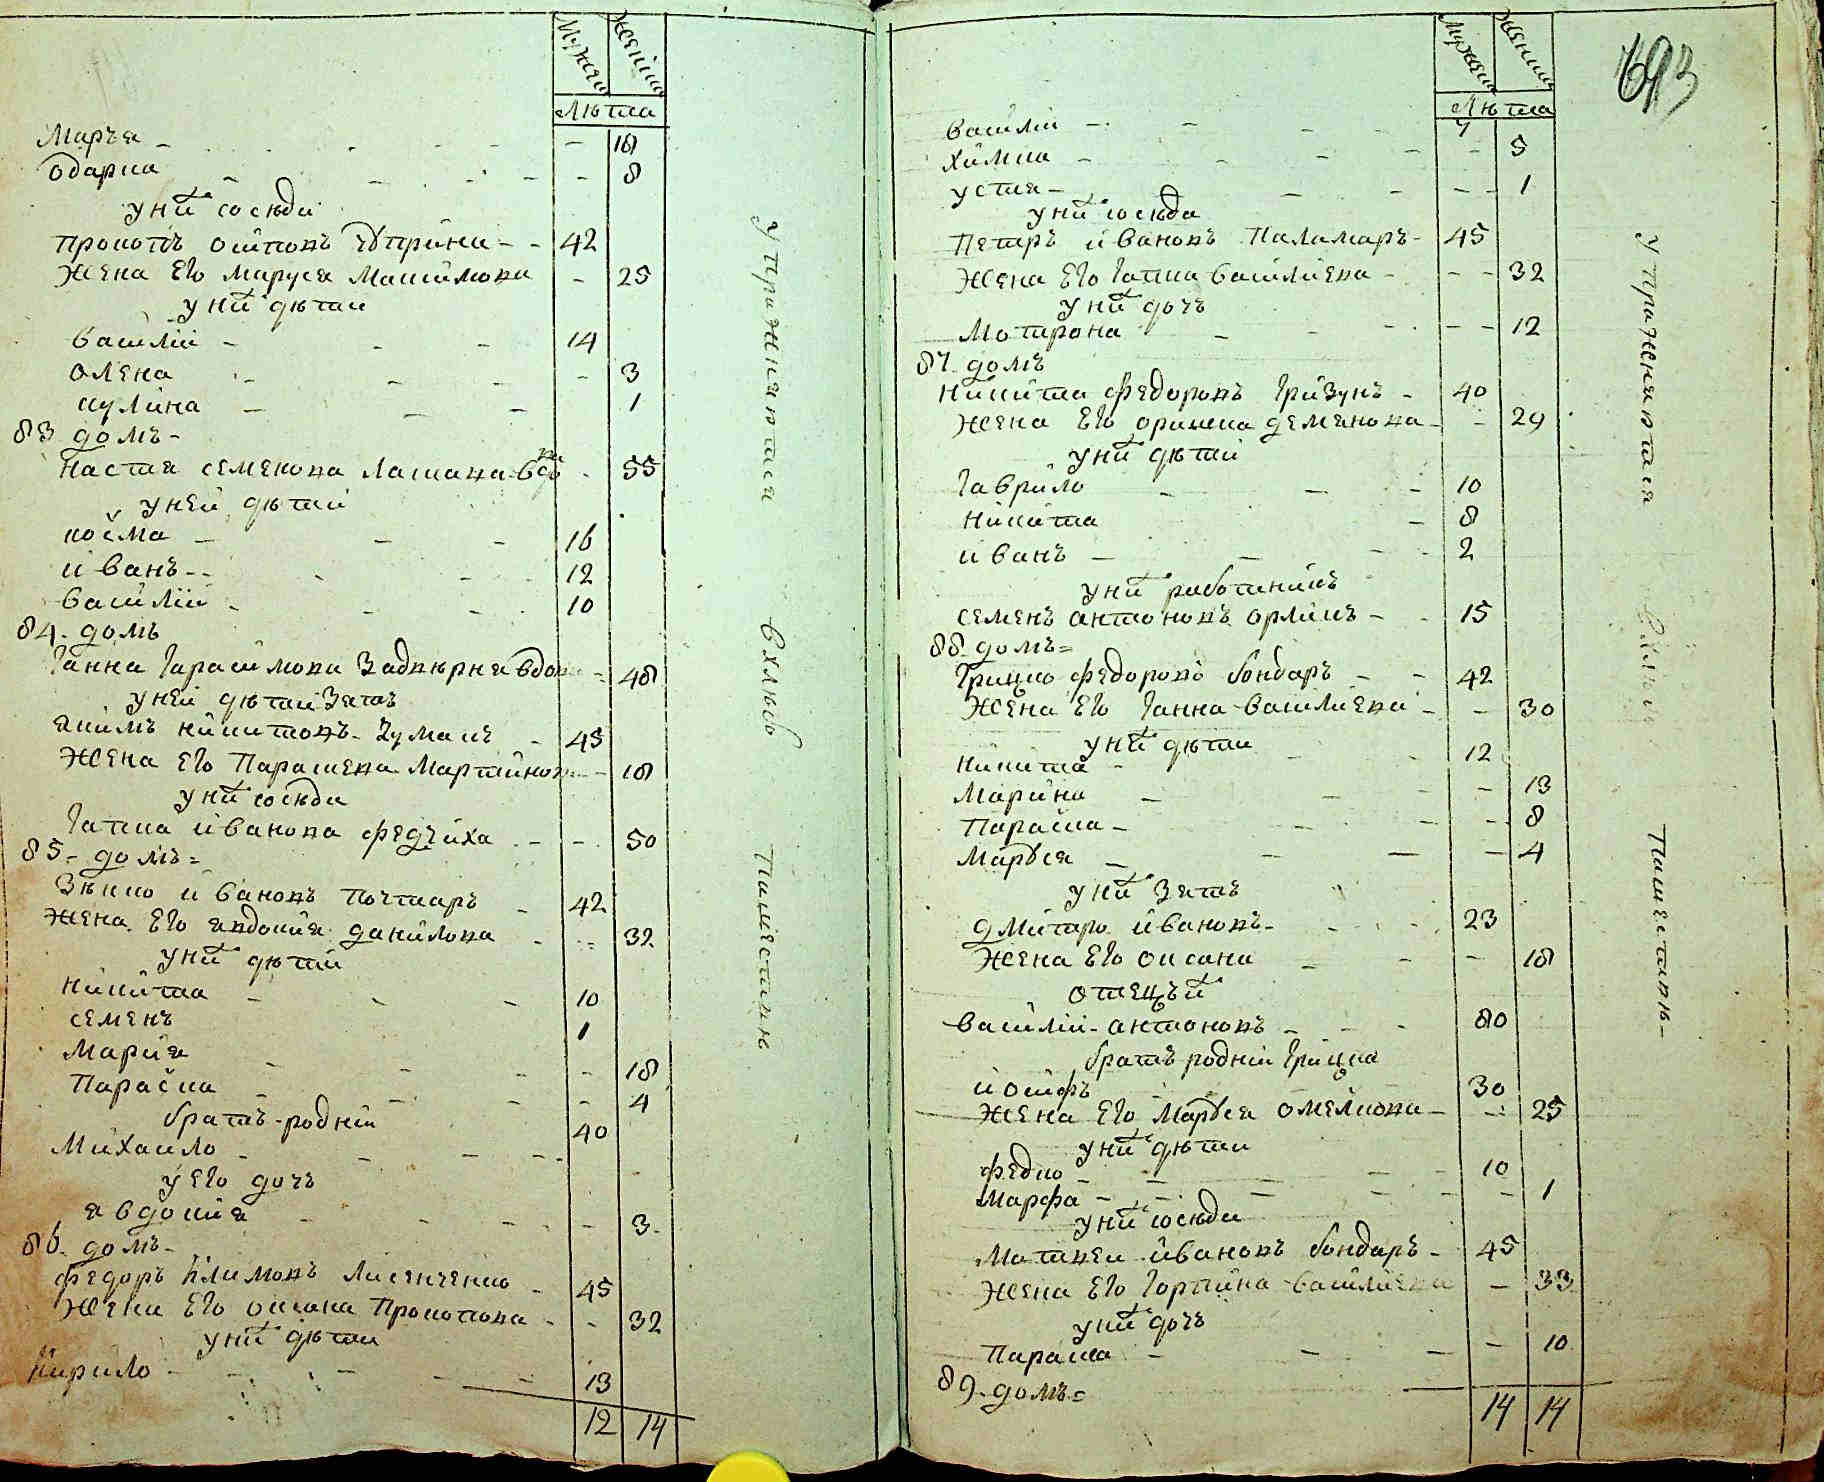 Мужеи Женшы
Лѣта
Марѣя - - 18
Одарка - - 8
у ни͠х сосѣди
Прокопъ Осиповъ Чуприна - 42
Жена Его Маруся Максимова - 25
у ни͠х дѣти
Василіи - 14
Олена - - 3
Кулина - 1
83 домъ-
Настя Семенова Лашана вдо͠ва - 55
у неи дѣти
Косма - 16
Иванъ - 12
Василіи - 10
84. домъ
Ганна Гарасимова Задвѣрня вдова - 48
у неи дѣти Зятъ
Якимъ Никитовъ Чумакъ - 45
Жена Его Параскева Мартинова - 18
у ни͠х сосѣди
Гапка Иванова Федчиха - - 50
85- домъ=
Зѣнко Ивановъ Почтаръ - 42
Жена Его Явдокия Данилова - = 32
у ни͠х дѣти
Никита - 10
Семенъ 1
Мария - - 18
Параска - - 4
братъ родніи
Михаило - 40
у Его дочъ
Явдокия - - 3.
86. домъ-
Федоръ Климовъ Лисенченко - 45
Жена Его Оксана Прокопова - - 32
у ни͠х дѣти
Кирило - 13
12 14
Упражняютъся
в хлѣбо
Пашествѣ
Мужеи Женшы
Лѣта
693
Василіи - 7
Химка - - 5
Устя - - 1
у ни͠х сосѣди
Петръ Ивановъ Паламаръ - 45
Жена Его Гапка Василиева - - 32
у ни͠х дочъ
Мотрона - - 12
87. домъ
Никита Федоровъ Гризунъ - 40
Жена Его Оришка Деменова - - 29
у ни͠х дѣти
Гаврило - 10
Никита - 8
Иванъ - 2
у ни͠х работникъ
Семенъ Антоновъ Орликъ - 15
88. домъ=
Грицко Федоровъ бондаръ - 42
Жена Его Ганна Василиева - - 30
у ни͠х дѣти
Никита - 12
Марина - - 13
Параска - - 8
Маруся - - 4
у ни͠х Зятъ
Дмитро Ивановъ - 23
Жена Его Оксана - - 18
Отецъ и͠х
Василіи Антоновъ - 80
братъ родніи Грицка
Иосифъ 30
Жена Его Маруся Омелкова - - 25
у ни͠х дѣти
Федко - 10
Марфа - - 1
у ни͠х сосѣди
Матвеи Ивановъ бондаръ - 45
Жена Его Горпина Василиева - 33
у ни͠х дочъ
Параска - - 10
89. домъ=
14 14
Упражняютъся
Пашествѣ-